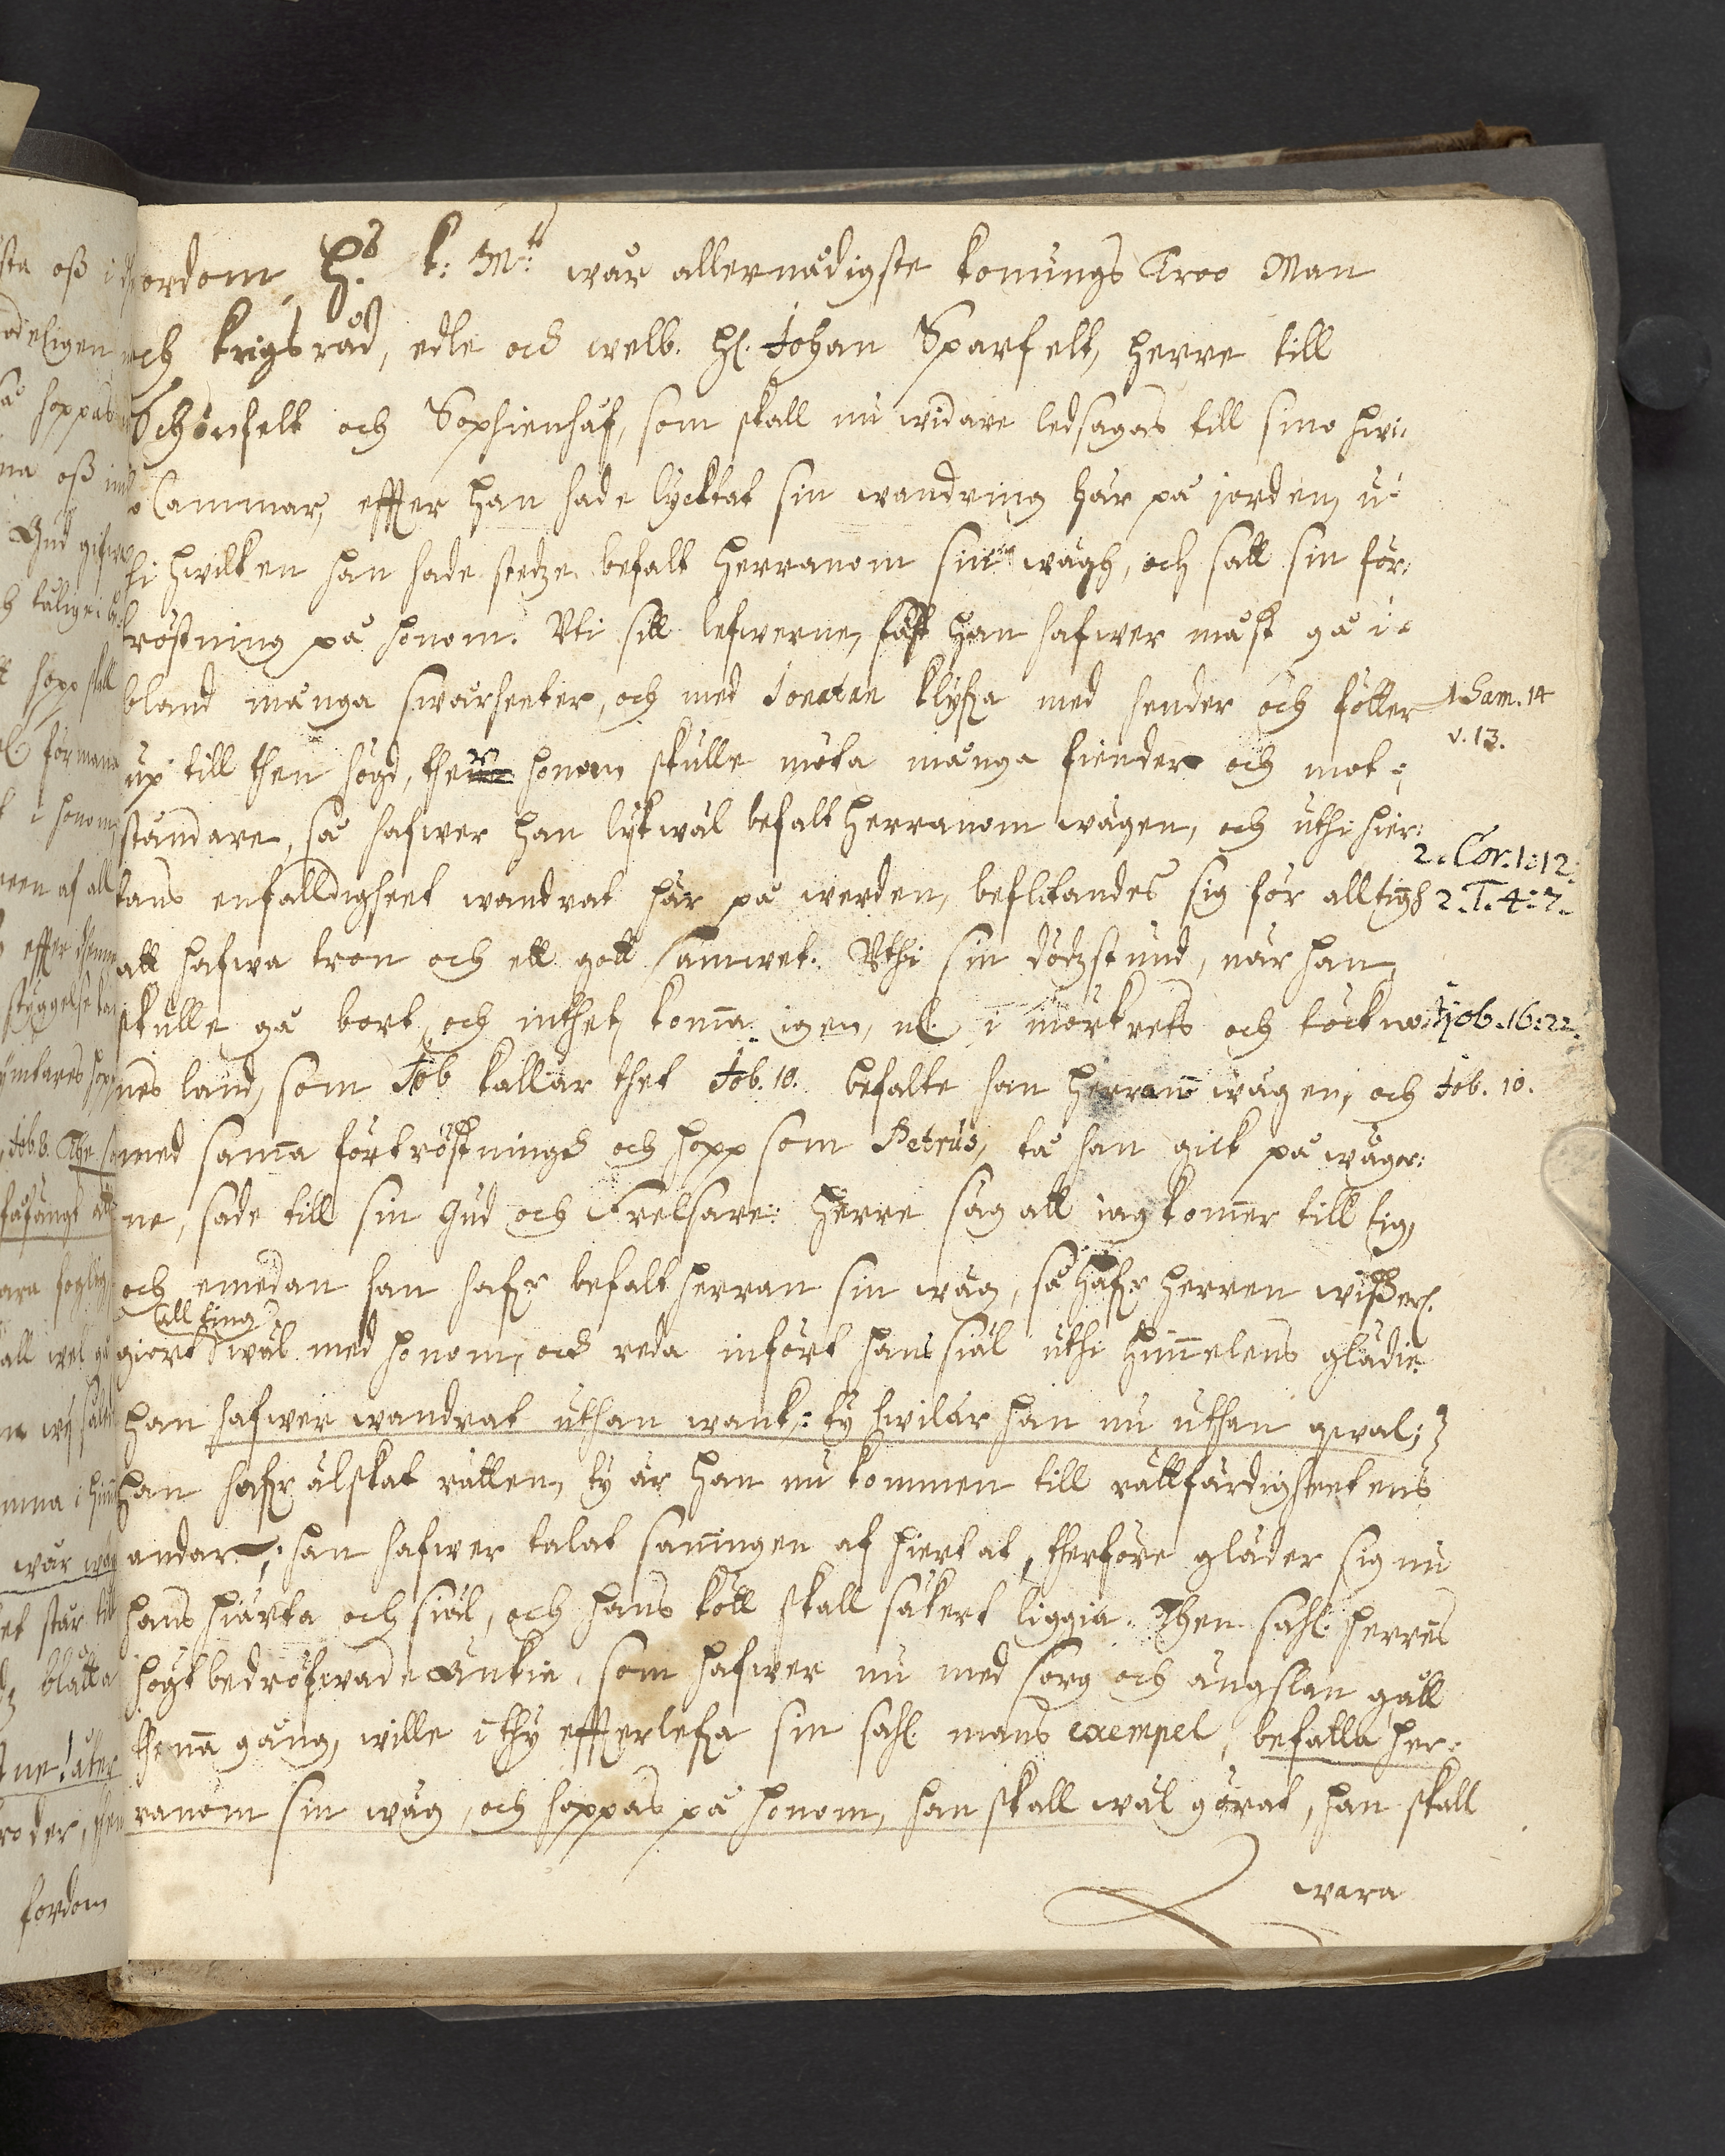 fordom H:s k: M:tt wår allernådigste konungs Troo Man
och krigsråd, edle och welb. H:r Johan Sparfelt, herre till
Schönfelt och Sophienhåf, som skall nu widare ledsagas till sino hwi-
lo Cammar, effter han hade lycktat sin wandring här på jorden, u-
thi hwilken han hade stedze befalt Herranom sin wägh, och satt sin för-
tröstning på honom. Uti sitt lefwerne, fast han hafwer måst gå i-
bland många swårheeter, och med Jonatan klyfa med hender och fötter
1. Sam. 14
v. 13.
up till then högd, ther honom skulle möta många fiender och mot-
ståndare, så hafwer han lykwäl befalt Herranom wägen, och uthi hier-
2. Cor. 1:12.
tans enfalldigheet wandrat här på werden, beflitandes sig för all tingh
2. T. 4:7.
att hafwa tron och ett gott samwet. Uthi sin dödzstund, när han
skulle gå bort, och inthet komma igen, nl. i mörkrets och töckni-
Hjob. 16:22.
nes land, som Job kallar thet Job. 10. befalte han Herranō wägen, och
Job. 10.
med samma förtröstningh och hopp som Petrus, tå han gick på wåger-
ne, sade till sin Gud och Frelsare: Herre säg att iag kommer till tig,
och emedan han hafr befalt Herran sin wäg, så hafr Herren wisserl.
all ting
giort wäl med honom, och reda infört hans siäl uthi himmelens glädie.
Han hafwer wandrat uthan wank: ty hwilar han nu uthan qwal;
Han hafr älskat rätten, ty är han nu kommen till rättfärdigheetens
andar; han hafwer talat sanningen af hiertat, therföre gläder sig nu
hans hiärta och siäl, och hans kött skall säkert liggia. Then sahl. herres
högtbedröfwade Änkia, som hafwer nu med sorg och ängslan gått
thenna gång, wille i thy effterlefa sin sahl. mans exempel, befalla Her-
ranom sin wäg, och hoppas på honom, han skall wäl görat, han skall
wara